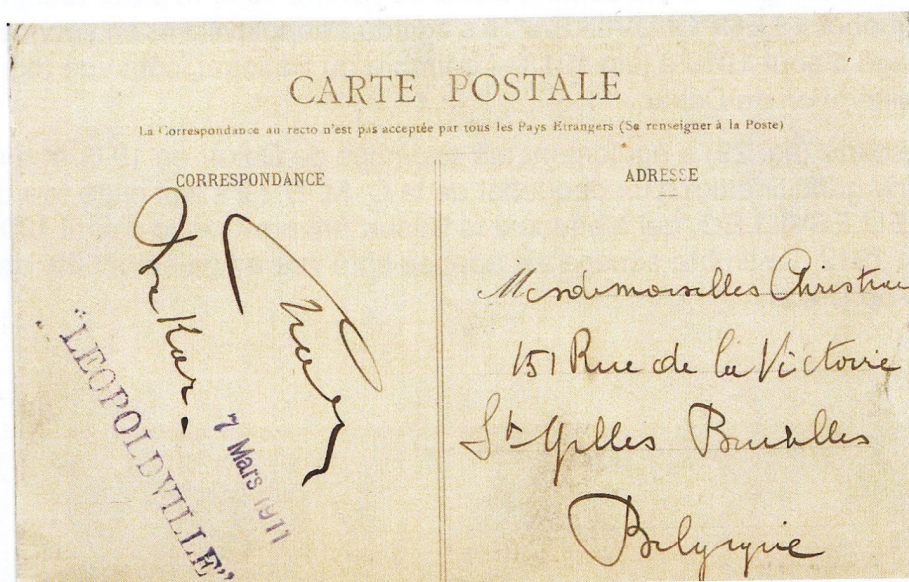 CARTE POSTALE
La Correspondance au recto n'est pas acceptée par tous les Pays Etrangers (Se renseigner à la Poste)
CORRESPONDANCE
Dakar.
"LEOPOLDVILLE"
7 Mars 1911
ADRESSE
Mesdemoiselles
151 Rue de la Victoire
St Gilles Bruxelles
Belgique